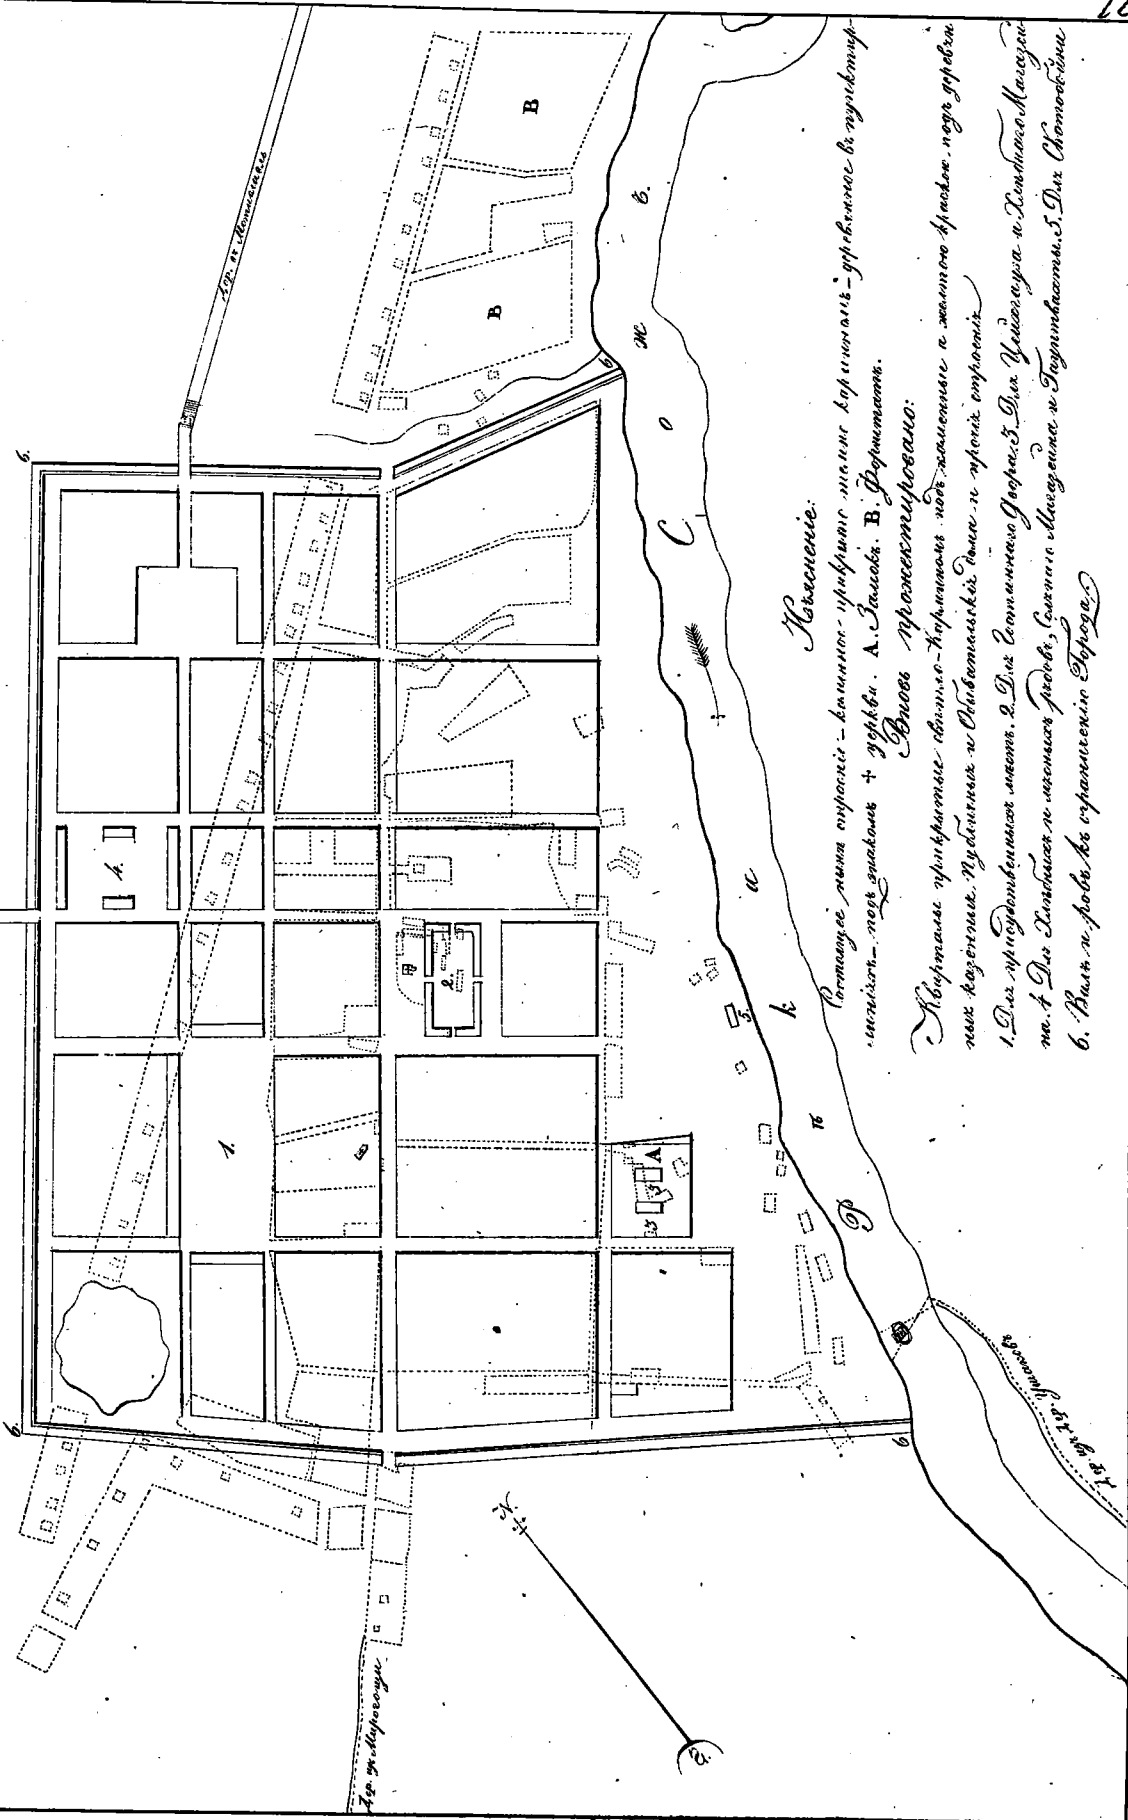 Изъясненіе:
Состоящее нынѣ строеніе – каменное – прикрыто темно карминомъ – деревянное въ пунктир-
ныхъ линіяхъ – подъ знакомъ + церкви. А. Замокъ. В. Форштатъ.
Вновь прожектировано:
Кварталы прикрытые свѣтло-Карминомъ подъ каменные а желтою краскою подъ деревян
ныя казенныя Публичныя и Обывательскія домы и протчія строенія
1. Для присудственныхъ мѣстъ. 2. Для Гостиннаго Двора. 3. Для Цейхгауза и Хлѣбнаго Магазей
на. 4 Для Хлѣбныхъ и мясныхъ рядовъ, Солянаго Магазейна и Гауптвахты. 5. Для Скотобойни
6. Валъ и ровъ къ ограниченію Города
Рѣка Сожъ
Дор.
Дор.
Дор. изъ дер.
А
В
В
1.
2
3
3
4.
5.
6.
6
6
6